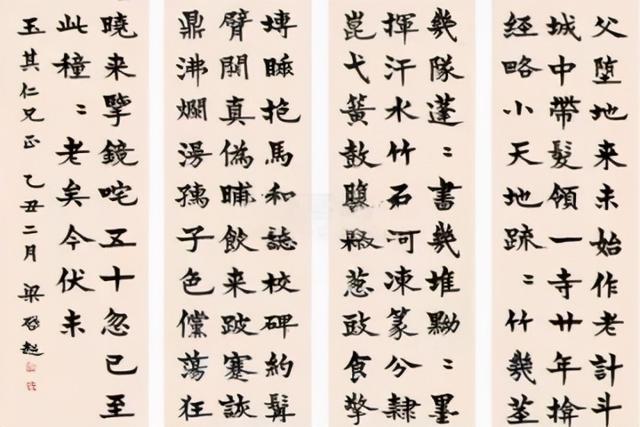 父墮地来未始作老計斗
城中帶髮領一寺廿年揜
經略小天地疏〻竹幾莖
幾隊蓬〻書幾堆黝〻墨
揮汗水竹石河凍篆分隸
崑弋簧鼓腹椒葱豉食擎
塼睡抱馬和誌校碑約髯
臂閧真偽晡飲来跛蹇詼
鼎沸爛湯孺子色儻蕩狂
曉来擥鏡咤五十忽已至
此穜〻老矣今伏未
玉其仁兄正 乙丑二月 梁啟超